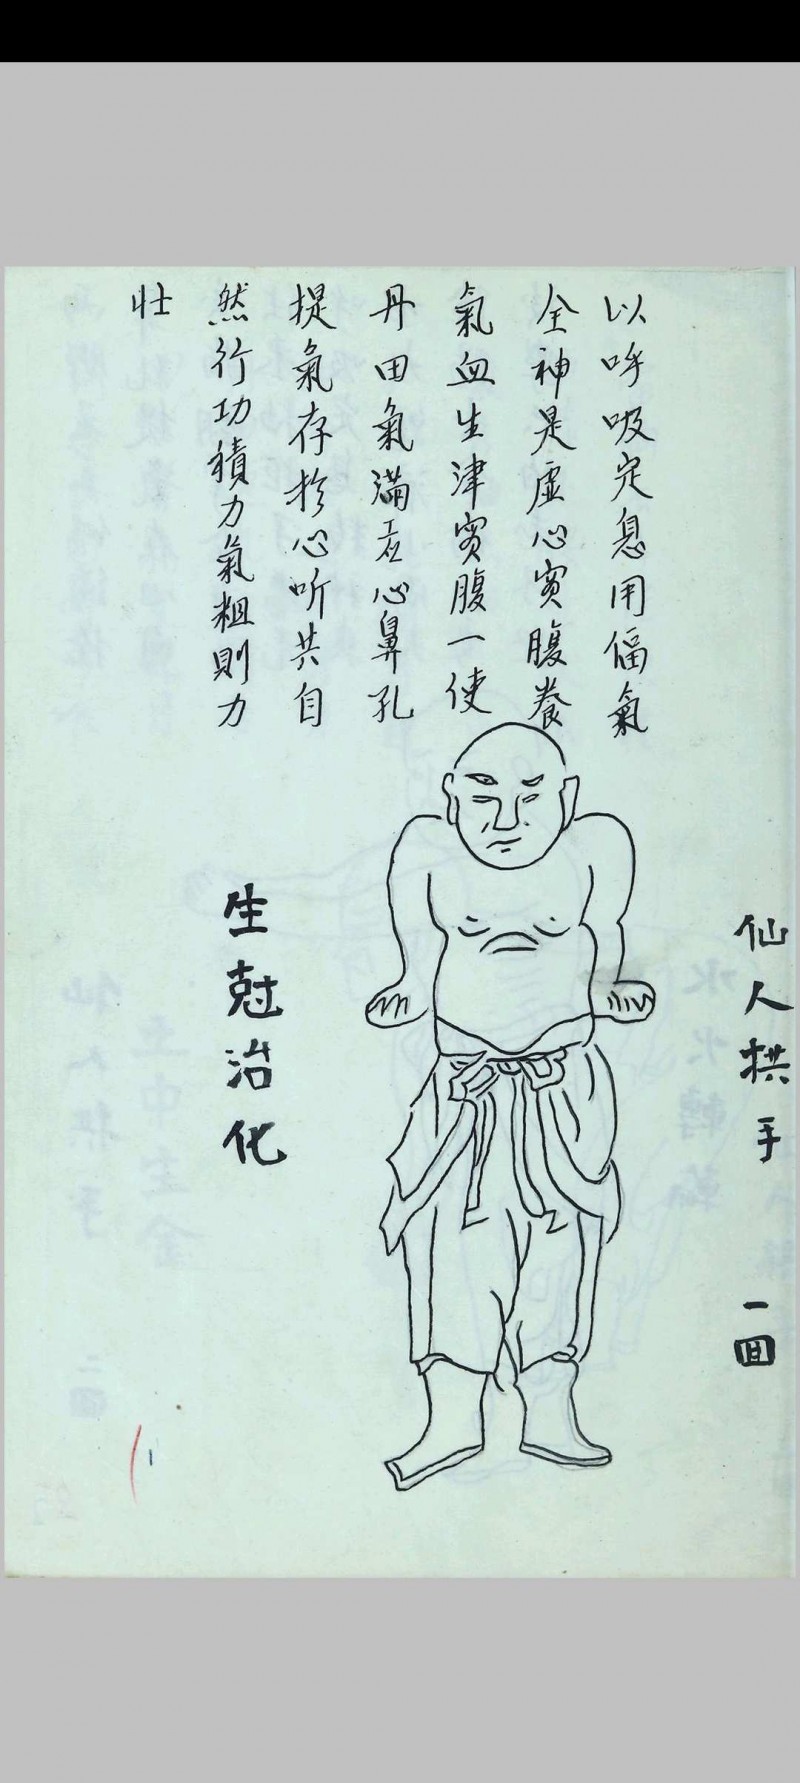 仙人拱手 一回
以呼吸定息用偪氣
全神是虛心實腹養
氣血生津實腹一使
丹田氣滿在心鼻孔
提氣存於心听其自
然行功積力氣粗則力
壯
生尅治化